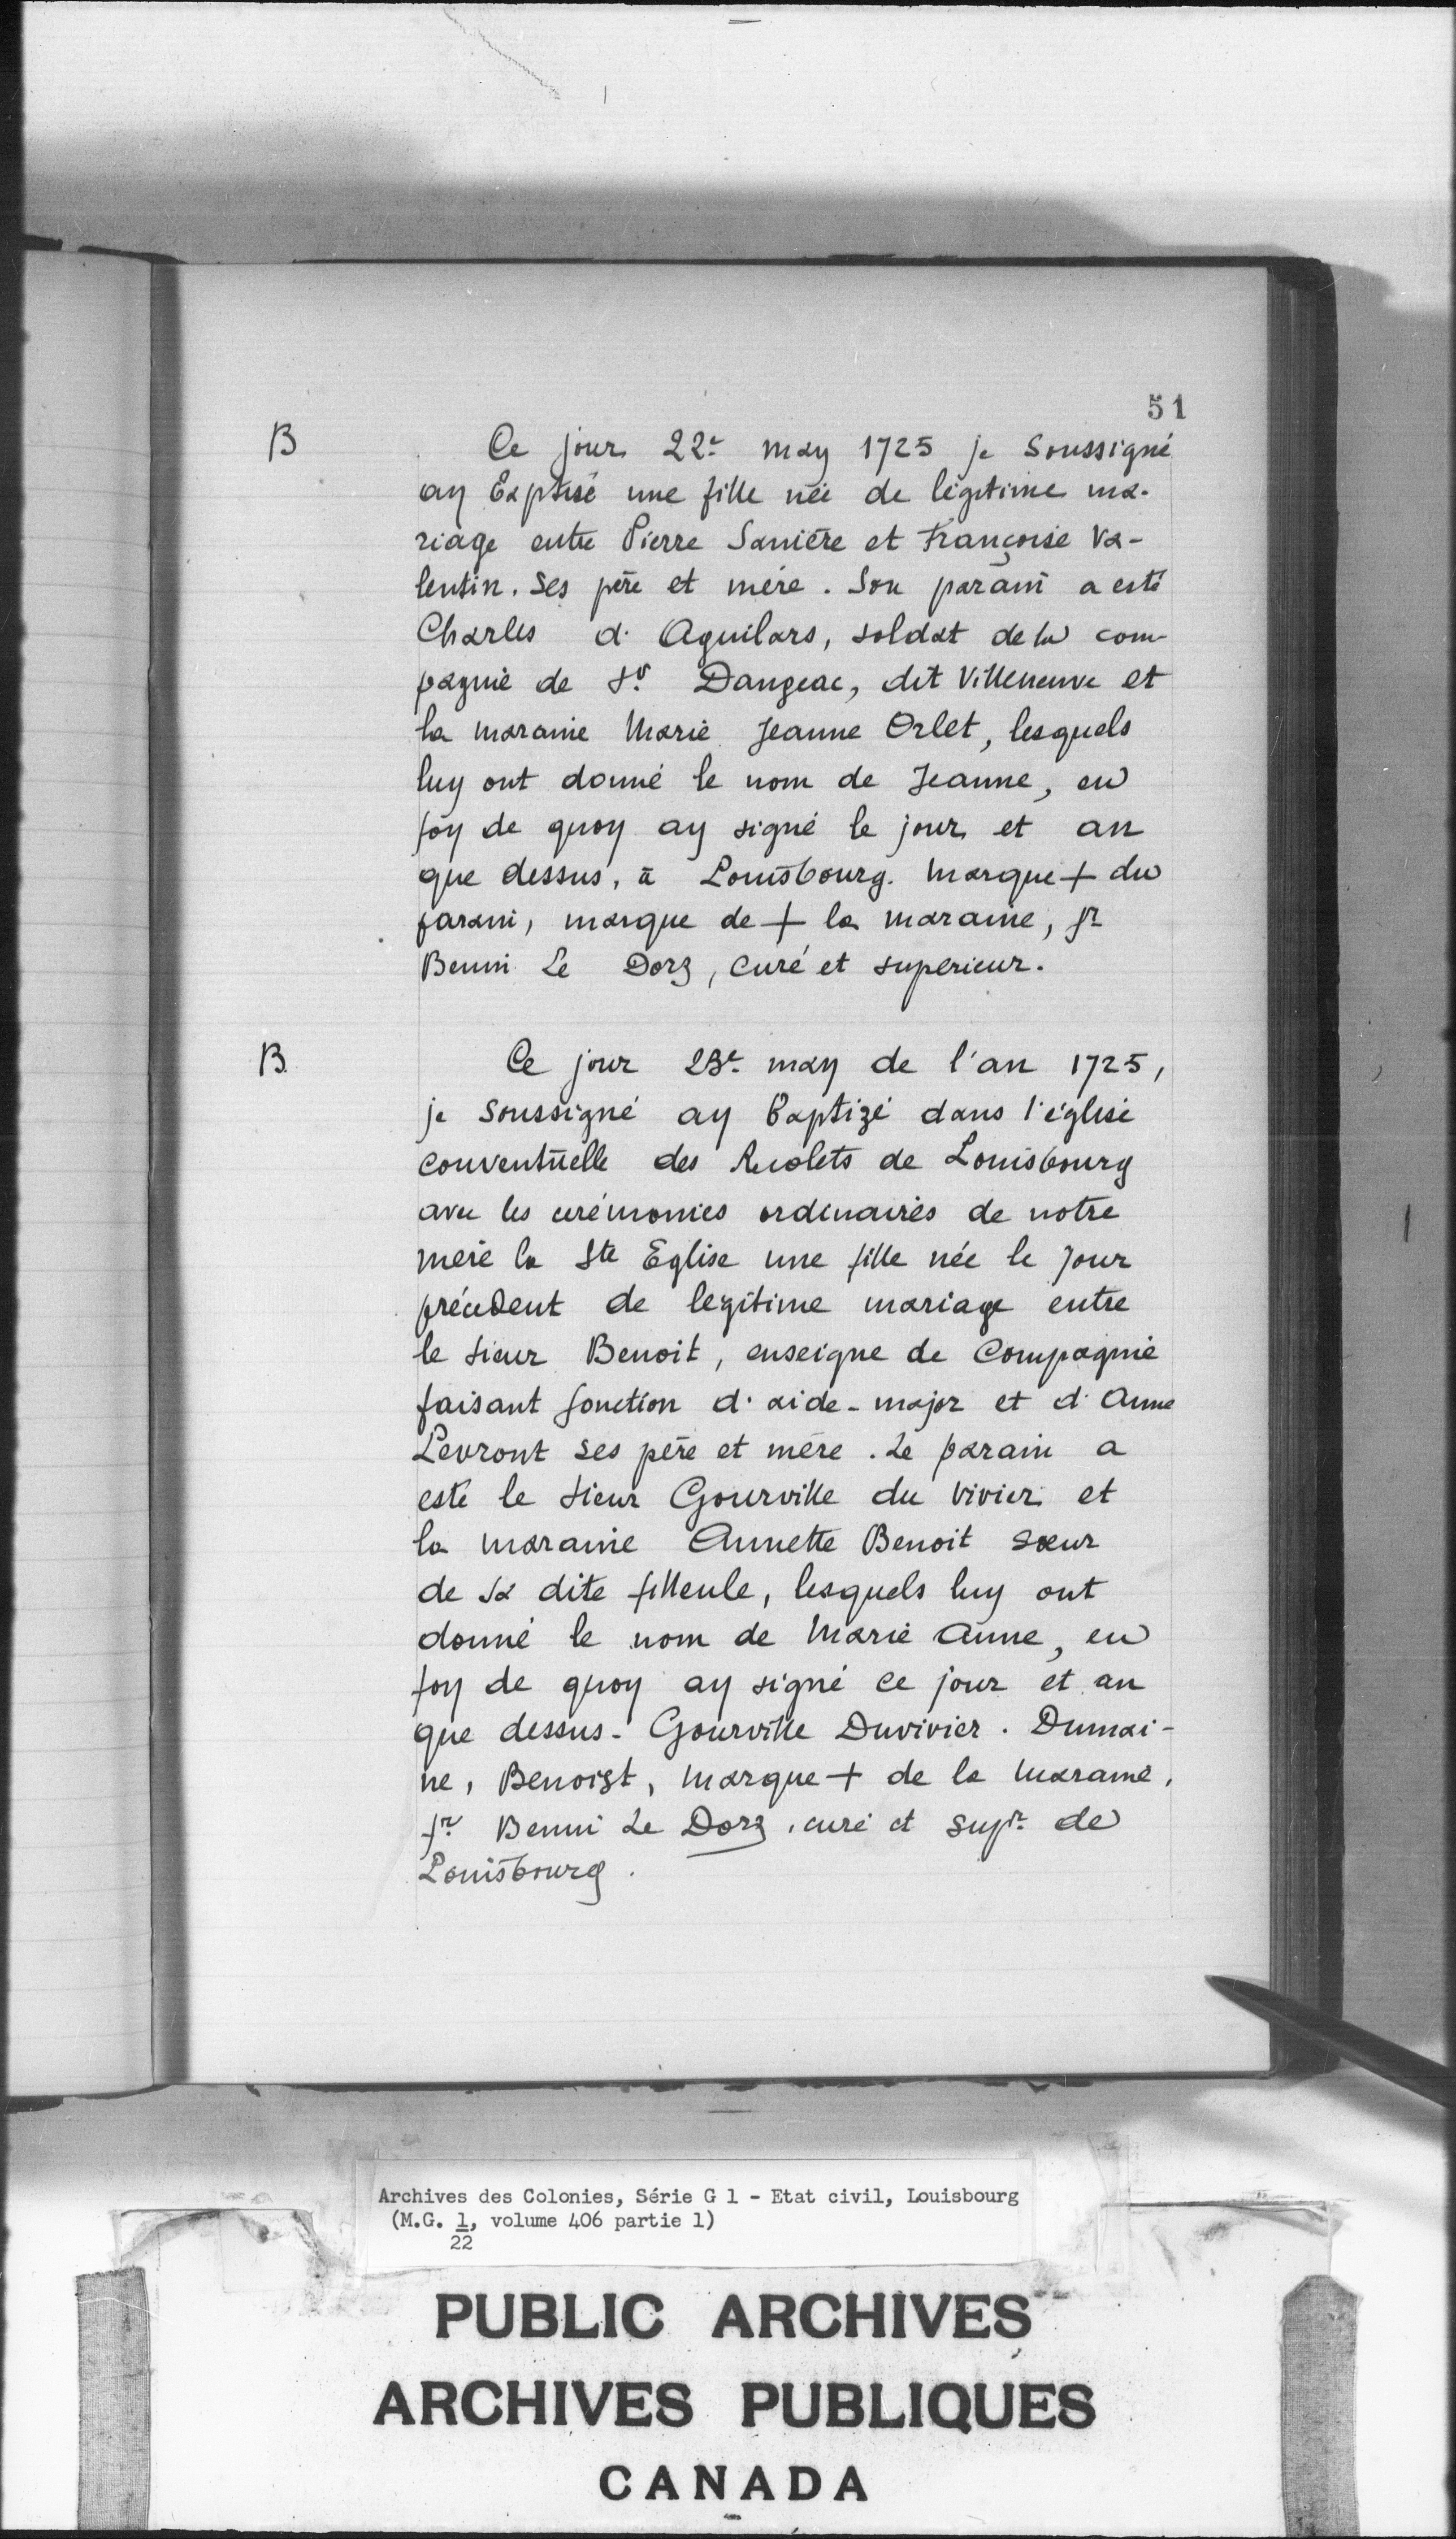 51
B Ce jour 22e may 1725 je Soussigné
ay Baptisé une fille née de légitime ma-
riage entre Pierre Sanière et Françoise Va-
lentin. Ses père et mère. Son parain a esté
Charles d'Aguilars, soldat de la com-
pagnie de Sr Dangeac, dit Villeneuve et
la maraine Marie Jeanne Orlet, lesquels
luy ont donné le nom de Jeanne, en
foy de quoy ay signé le jour et an
que dessus, à Louisbourg. Marque + du
parain, marque de + la maraine, fr
Benin Le Dorz, curé et superieur.
B. Ce jour 23e may de l'an 1725,
je soussigné ay baptizé dans l'église
conventuelle des Recolets de Louisbourg
avec les cérémonies ordinaires de notre
mère la Ste Eglise une fille née le jour
précedent de legitime mariage entre
le sieur Benoit, enseigne de Compagnie
faisant fonction d'aide-major et d'Anne
Levront ses père et mère. Le parain a
esté le sieur Gourville du Vivier et
la maraine Annette Benoit sœur
de sa dite filleule, lesquels luy ont
donné le nom de Marie Anne, en
foy de quoy ay signé ce jour et an
que dessus - Gourville Duvivier. Dumai-
ne, Benoist, Marque + de la maraine,
fr Benin Le Dorz, curé et supr de
Louisbourg.
Archives des Colonies, Série G 1 - Etat civil, Louisbourg
(M.G. 1, volume 406 partie 1)
22
PUBLIC ARCHIVES
ARCHIVES PUBLIQUES
CANADA